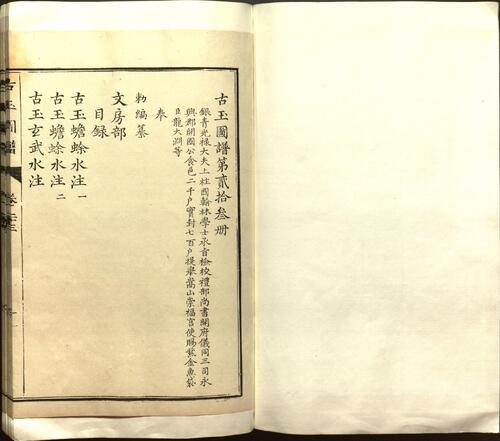 古玉圖譜第貳拾叁册
銀青光祿大夫上柱國翰林學士承旨檢校禮部尚書開府儀同三司永
興郡開國公食邑二千户實封七百户提舉嵩山崇福宫使賜紫金魚袋
臣龍大淵等
奉
勅編纂
文房部
目録
古玉蟾蜍水注一
古玉蟾蜍水注二
古玉玄武水注
古玉圖譜
卷二十三